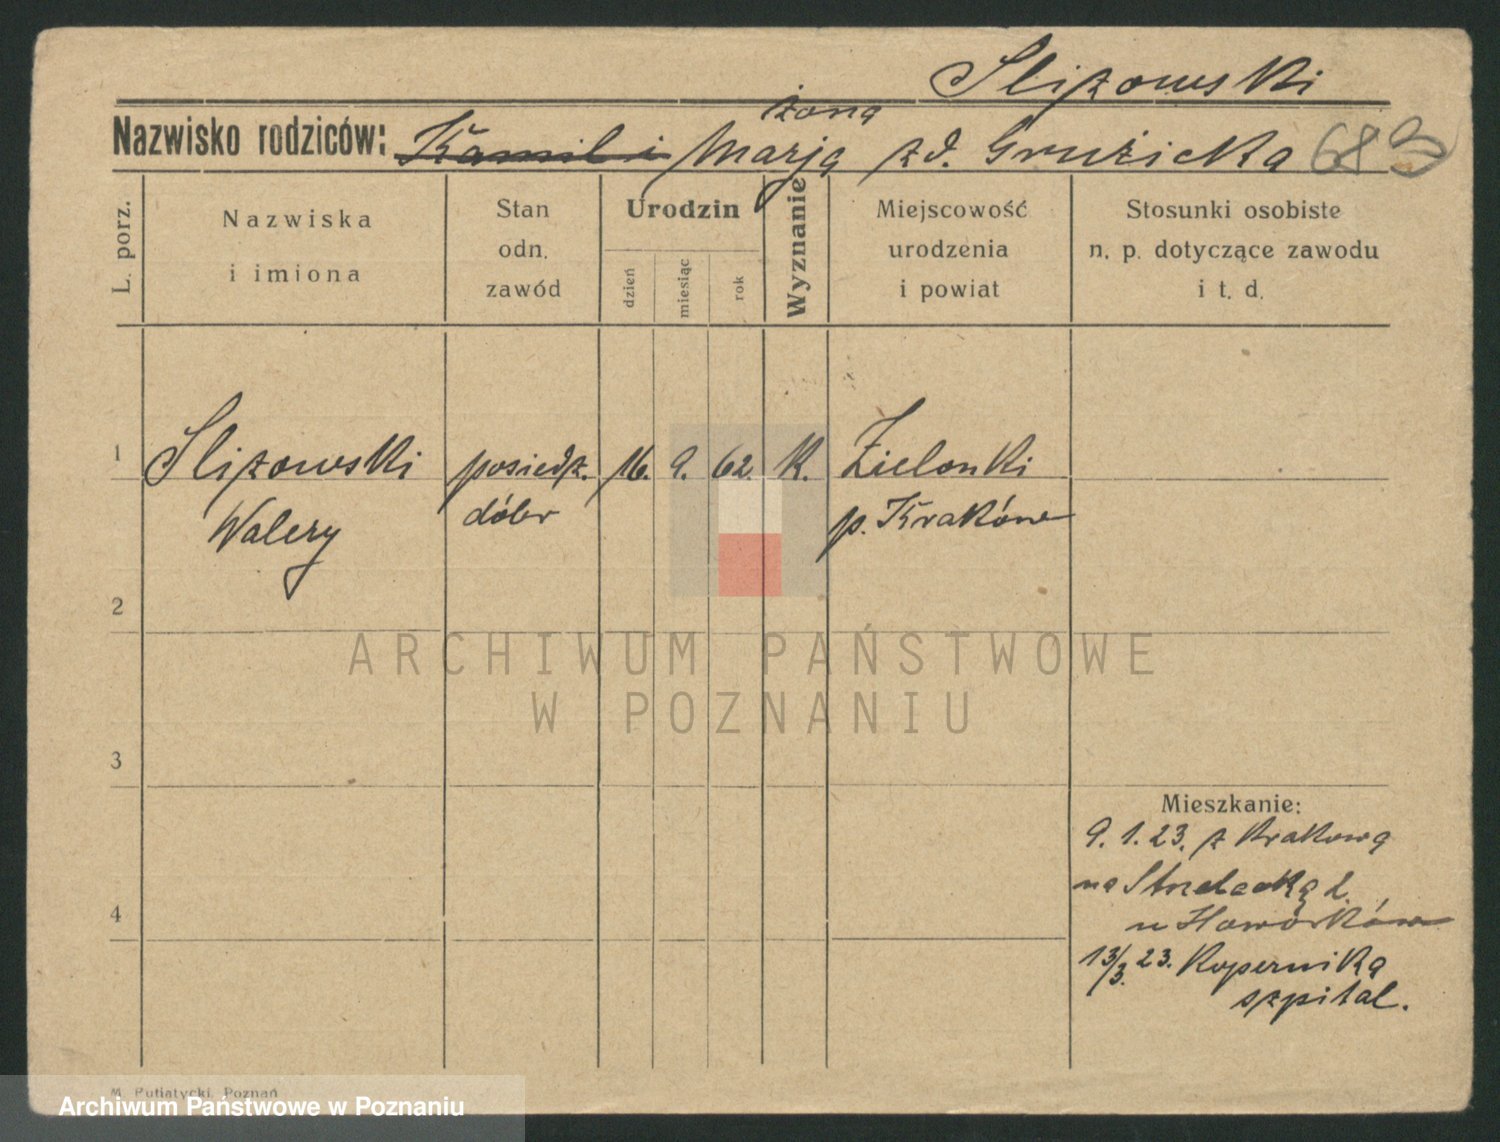 Slizowski
żona
Nazwisko rodziców: Kamil i Marja zd. Grużicka 689
L. porz.
Nazwiska i imiona
Stan odn. zawód
Urodzin
dzień
miesiąc
rok
Wyznanie
Miejscowość urodzenia i powiat
Stosunki osobiste n. p. dotyczące zawodu i t. d.
1 Slizowski posiedz. 16. 9. 62. K. Zielonki
Walery dóbr p. Kraków
2
3
4
Mieszkanie:
9. 1. 23. z Krakowa
na Strzelecką 2.
u Haworków
13/3. 23. Kopernika
szpital.
M. Putiatycki, Poznań
ARCHIWUM PAŃSTWOWE
W POZNANIU
Archiwum Państwowe w Poznaniu